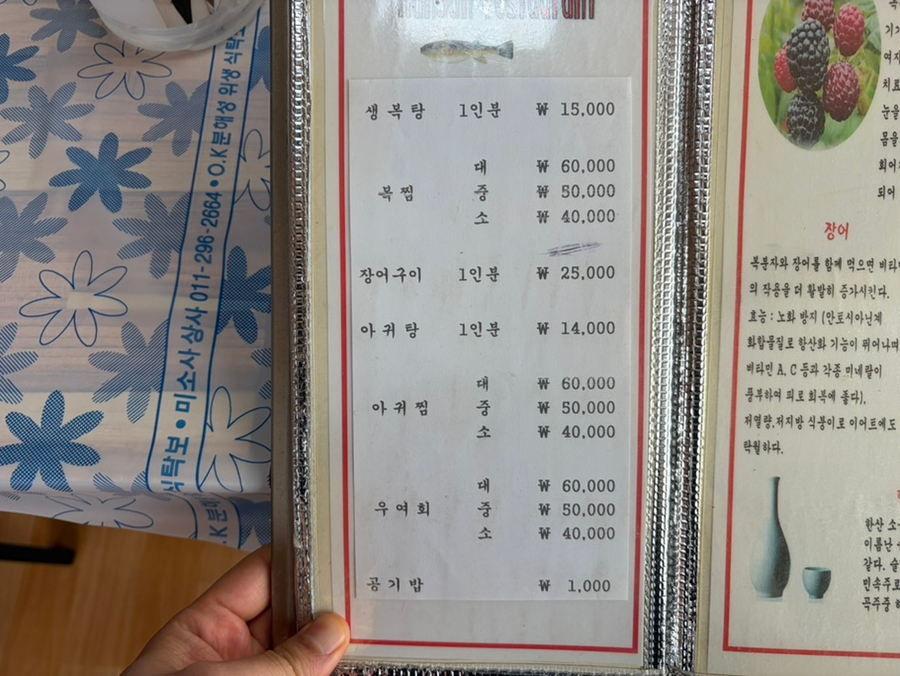 생복탕 1인분 ₩ 15,000
대 ₩ 60,000
복찜 중 ₩ 50,000
소 ₩ 40,000
장어구이 1인분 ₩ 25,000
아귀탕 1인분 ₩ 14,000
대 ₩ 60,000
아귀찜 중 ₩ 50,000
소 ₩ 40,000
대 ₩ 60,000
우여회 중 ₩ 50,000
소 ₩ 40,000
공기밥 ₩ 1,000
여자
치료
눈을
몸을
되어
장어
복분자와 장어를 함께 먹으면 비타
의 작용을 더 활발히 증가시킨다.
효능 : 노화 방지 (안토시아닌계
화합물질로 항산화 기능이 뛰어나며
비타민 A, C 등과 각종 미네랄이
풍부하여 피로 회복에 좋다).
저열량, 저지방 식품이로 이어트에도
탁월하다.
한산 소
이름난
같다. 술
민속주로
곡주중
식탁보 • 미소사 상사 011-296-2664 • O.K분해성 위생 식탁보
.K 분해